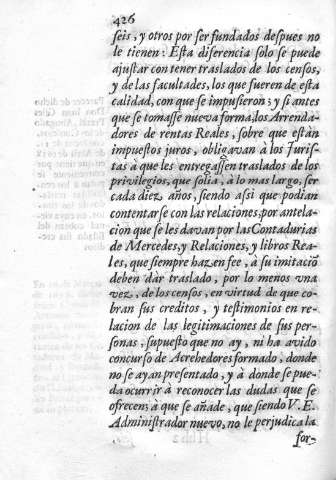 426
seis, y otros por ser fundados despues no
le tienen: Esta diferencia solo se puede
ajustar con tener traslados de los censos,
y de las facultades, los que fueren de esta
calidad, con que se impusieron; y si antes
que se tomasse nueva forma, los Arrenda-
dores de rentas Reales, sobre que estàn
impuestos juros, obligavan à los Juris-
tas à que les entregassen traslados de los
privilegios, que solia, à lo mas largo, ser
cada diez años, siendo assi que podian
contentarse con las relaciones, por antela-
cion que se les davan por las Contadurias
de Mercedes, y Relaciones, y libros Rea-
les, que siempre hazen fee, à su imitaciõ
deben dàr traslado, por lo menos vna
vez, de los censos, en virtud de que co-
bran sus creditos, y testimonios en re-
lacion de las legitimaciones de sus per-
sonas, supuesto que no ay, ni ha avido
concurso de Acrehedores formado, donde
no se ayan presentado, y à donde se pue-
da ocurrir à reconocer las dudas que se
ofrecen; à que se añade, que siendo V. E.
Administrador nuevo, no le perjudica la
for-